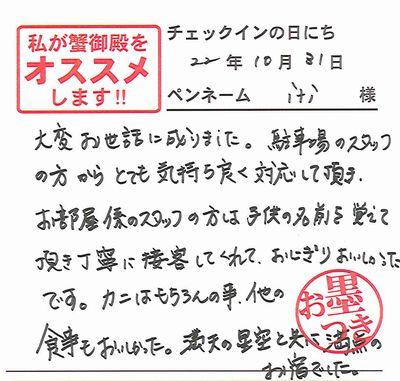 私が蟹御殿を
オススメ
します!!
チェックインの日にち
22年10月31日
ペンネーム 様
大変お世話に成りました。駐車場のスタッフ
の方からとても気持ち良く対応して頂き、
お部屋係のスタッフの方は子供の名前を覚えて
頂き丁寧に接客してくれて、おにぎりおいしかった
です。カニはもちろんの事、他の
食事もおいしかった。満天の星空と共に満点の
お宿でした。
お墨つき